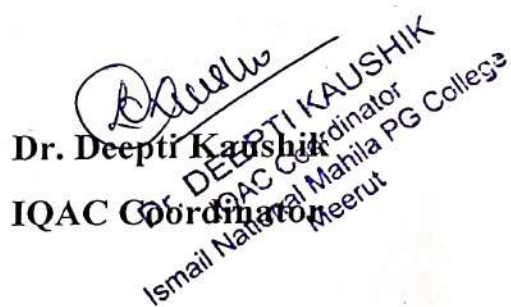 Kaushik
Dr. Deepti Kaushik
IQAC Coordinator
Dr. DEEPTI KAUSHIK
IQAC Coordinator
Ismail National Mahila PG College
Meerut